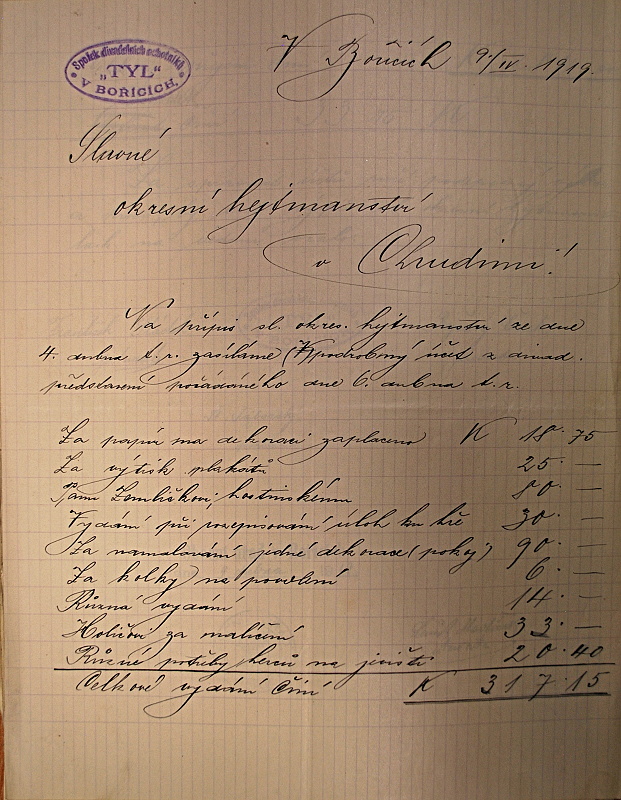 Spolek divadelních ochotníků
„TYL"
V BOŘICÍCH.
V Bořicích 9./IV. 1919.
Slavné
okresní hejtmanství
v Chrudimi!
Na přípis sl. okres. hejtmanství ze dne
4. dubna t. r. zasíláme podrobný účet z divad.
představení pořádaného dne 6. dubna t. r.
Za papír na dekoraci zaplaceno K 18·75
Za výtisk plakátů 25·—
Panu Zemličkovi, hostinskému 80·—
Vydání při rozepisování úloh ku hře 30·—
Za namalování jedné dekorace (pokoj) 90·—
Za kolky na povolení 6·—
Různá vydání 14·—
Holičovi za malíčení 33·—
Různé potřeby herců na jevišti 20·40
Celkové vydání činí K 317·15